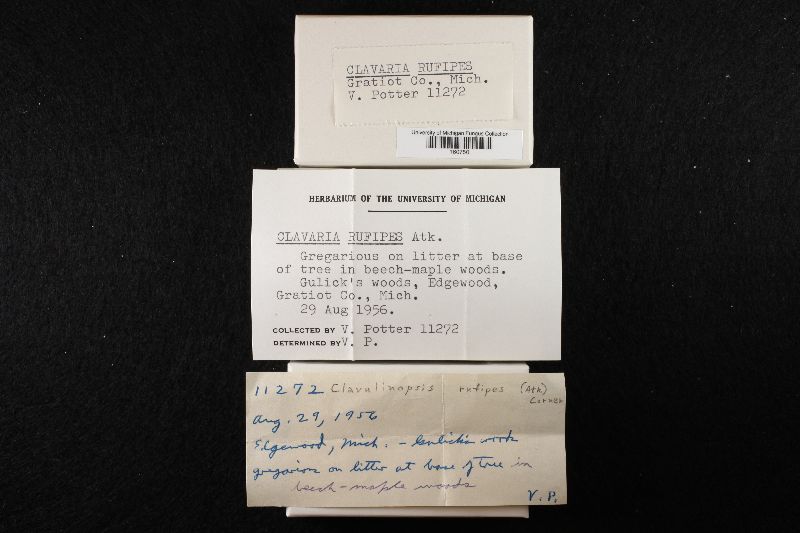 CLAVARIA RUFIPES
Gratiot Co., Mich.
V. Potter 11272
University of Michigan Fungus Collection
HERBARIUM OF THE UNIVERSITY OF MICHIGAN
CLAVARIA RUFIPES Atk.
Gregarious on litter at base
of tree in beech-maple woods.
Gulick's woods, Edgewood,
Gratiot Co., Mich.
29 Aug 1956.
COLLECTED BY V. Potter 11272
DETERMINED BY V. P.
11272 Clavulinopsis rufipes (Atk)
Corner
Aug. 29, 1956
Edgewood, Mich. - Gulick's woods
gregarious on litter at base of tree in
beech-maple woods
V. P.